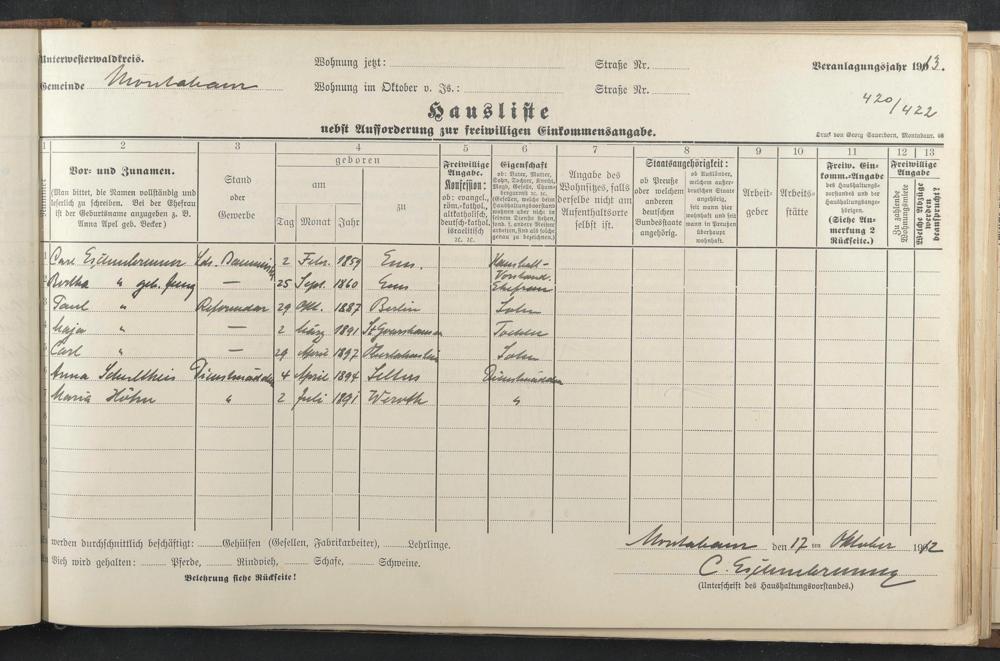 Unterwesterwaldkreis.
Gemeinde Montabaur
Wohnung jetzt: Straße Nr.
Wohnung im Oktober v. Js.: Straße Nr.
Veranlagungsjahr 1913.
420/422
Hausliste
nebst Aufforderung zur freiwilligen Einkommensangabe.
Druck von Georg Sauerborn, Montabaur.
1 2 3 4 5 6 7 8 9 10 11 12 13
Nummer
Vor- und Zunamen.
(Man bittet, die Namen vollständig und
leserlich zu schreiben. Bei der Ehefrau
ist der Geburtsname anzugeben z. B.
Anna Apel geb. Becker)
Stand
oder
Gewerbe
geboren
am
Tag Monat Jahr
zu
Freiwillige
Angabe.
Konfession:
ob: evangel.,
röm.-kathol.,
altkatholisch,
deutsch-kathol.
israelitisch
ec. ec.
Eigenschaft
ob: Vater, Mutter,
Sohn, Tochter, Knecht,
Magd, Geselle,
Angabe des
Wohnsitzes, falls
derselbe nicht am
Aufenthaltsorte
selbst ist.
Staatsangehörigkeit:
ob Preuße
oder welchem
anderen
deutschen
Bundesstaate
angehörig.
ob Ausländer,
welchem außer-
deutschen Staate
angehörig,
seit wann hier
wohnhaft und seit
wann in Preußen
überhaupt
wohnhaft.
Arbeit-
geber
Arbeits-
stätte
Freiw. Ein-
komm.-Angabe
des Haushaltungs-
vorstandes und der
Haushaltungsange-
hörigen.
(Siehe An-
merkung 2
Rückseite.)
Freiwillige
Angabe
Zu zahlende
Wohnungsmiete
Welche Abzüge
werden
beansprucht?
Carl 2 Febr. 1859 Ems. Haushalt-
Vorstand.
2 Bertha " geb. Jung — 25 Sept. 1860 Ems Ehefrau
3 Paul " Referendar 29 Okt. 1887 Berlin Sohn
4 " — 2 März 1891 St Goarshausen Tochter
5 Carl " — 29 April 1897 Oberlahnstein Sohn
6 Anna Schultheis Dienstmädchen 4 April 1894 Selters Dienstmädchen
7 Maria Höhn " 2 Juli 1891 Weroth "
8
9
10
11
12
Es werden durchschnittlich beschäftigt: Gehülfen (Gesellen, Fabrikarbeiter), Lehrlinge.
An Vieh wird gehalten: Pferde, Rindvieh, Schafe, Schweine.
Belehrung siehe Rückseite!
Montabaur den 17 ten Oktober 1912
C.
(Unterschrift des Haushaltungsvorstandes.)